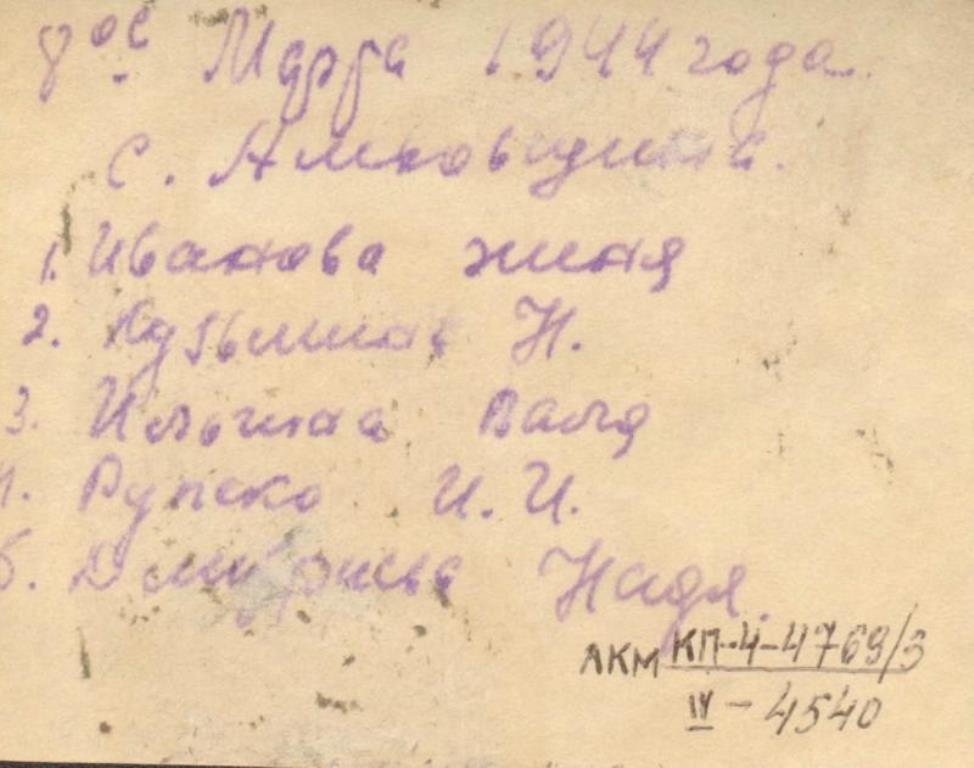 8ое Марта 1944 года.
с.
1. Иванова Женя
2. Кузьмина Н.
3. Ильина Валя
4. Рупеко И. И.
5. Дмитриева Надя.
АКМ КП-4-4769/3
IV - 4540